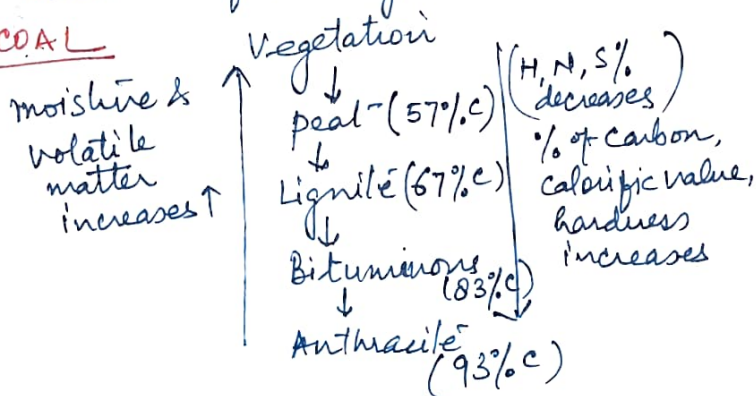 COAL
Vegetation
↓
moisture &
volatile
matter
increases ↑
peat - (57%C)
↓
Lignite (67%C)
↓
Bituminous
(83%C)
↓
Anthracite
(93%C)
(H, N, S%
decreases)
% of Carbon,
calorific value,
hardness
increases